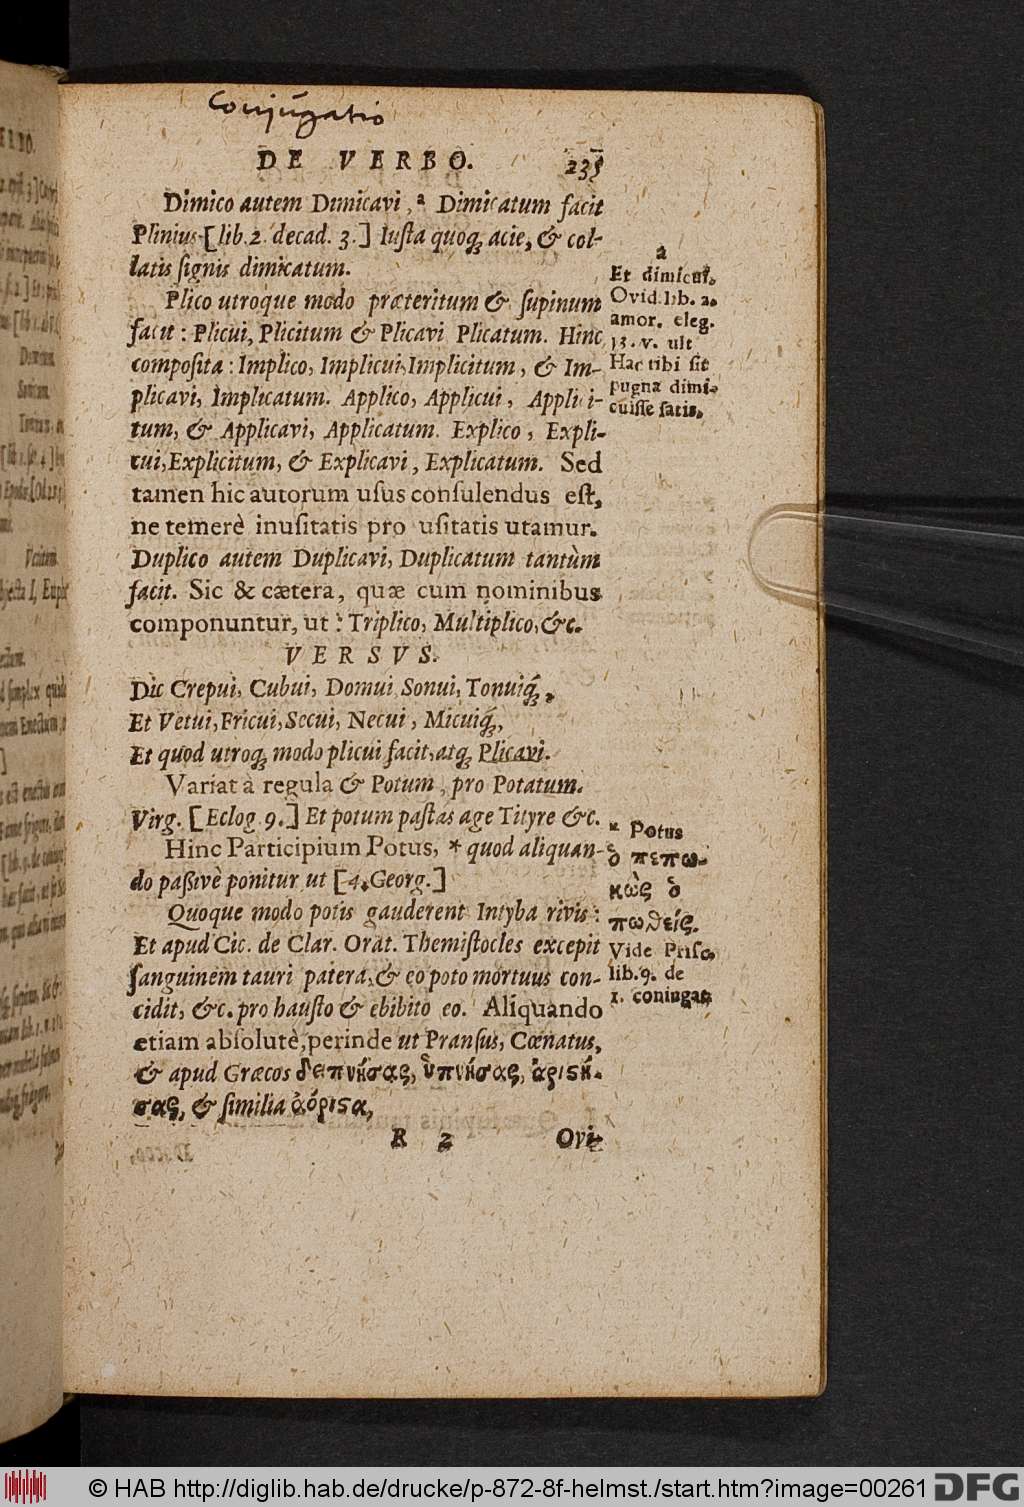 Conjugatio
DE VERBO. 235
Dimico autem Dimicavi, a Dimicatum facit
Plinius [lib. 2. decad. 3.] Iusta quoq́; acie, & col-
latis signis dimicatum.
Plico utroque modo præteritum & supinum
facit : Plicui, Plicitum & Plicavi Plicatum. Hinc
composita : Implico, Implicui, Implicitum, & Im-
plicavi, Implicatum. Applico, Applicui, Applici-
tum, & Applicavi, Applicatum. Explico, Expli-
cui, Explicitum, & Explicavi, Explicatum. Sed
tamen hic autorum usus consulendus est,
ne temerè inusitatis pro usitatis utamur.
Duplico autem Duplicavi, Duplicatum tantùm
facit. Sic & cætera, quæ cum nominibus
componuntur, ut : Triplico, Multiplico, &c.
VERSVS.
Dic Crepui, Cubui, Domui Sonui, Tonuiq́;,
Et Vetui, Fricui, Secui, Necui, Micuiq́;,
Et quod utroq; modo plicui facit, atq; Plicavi.
Variat à regula & Potum, pro Potatum.
Virg. [Eclog 9.] Et potum pastas age Tityre &c.
Hinc Participium Potus, * quod aliquan-
do passivè ponitur ut [4. Georg.]
Quoque modo potis gauderent Intyba rivis :
Et apud Cic. de Clar. Orat. Themistocles excepit
sanguinem tauri patera, & eo poto mortuus con-
cidit, &c. pro hausto & ebibito eo. Aliquando
etiam absolutè, perinde ut Pransus, Cœnatus,
& apud Græcos δειπνήσας, ὑπνήσας, ἀριϛή-
σας, & similia ἀόριϛα,
R 2 Ovi-
a
Et dimicui.
Ovid. lib. 2.
amor. eleg.
13. v. ult
Hac tibi sit
pugna dimi-
cuisse satis.
* Potus
ὁ πεπω-
κὼς ὁ
πωθείς.
Vide Prisc.
lib. 9. de
1. coniugat.
© HAB http://diglib.hab.de/drucke/p-872-8f-helmst./start.htm?image=00261
DFG